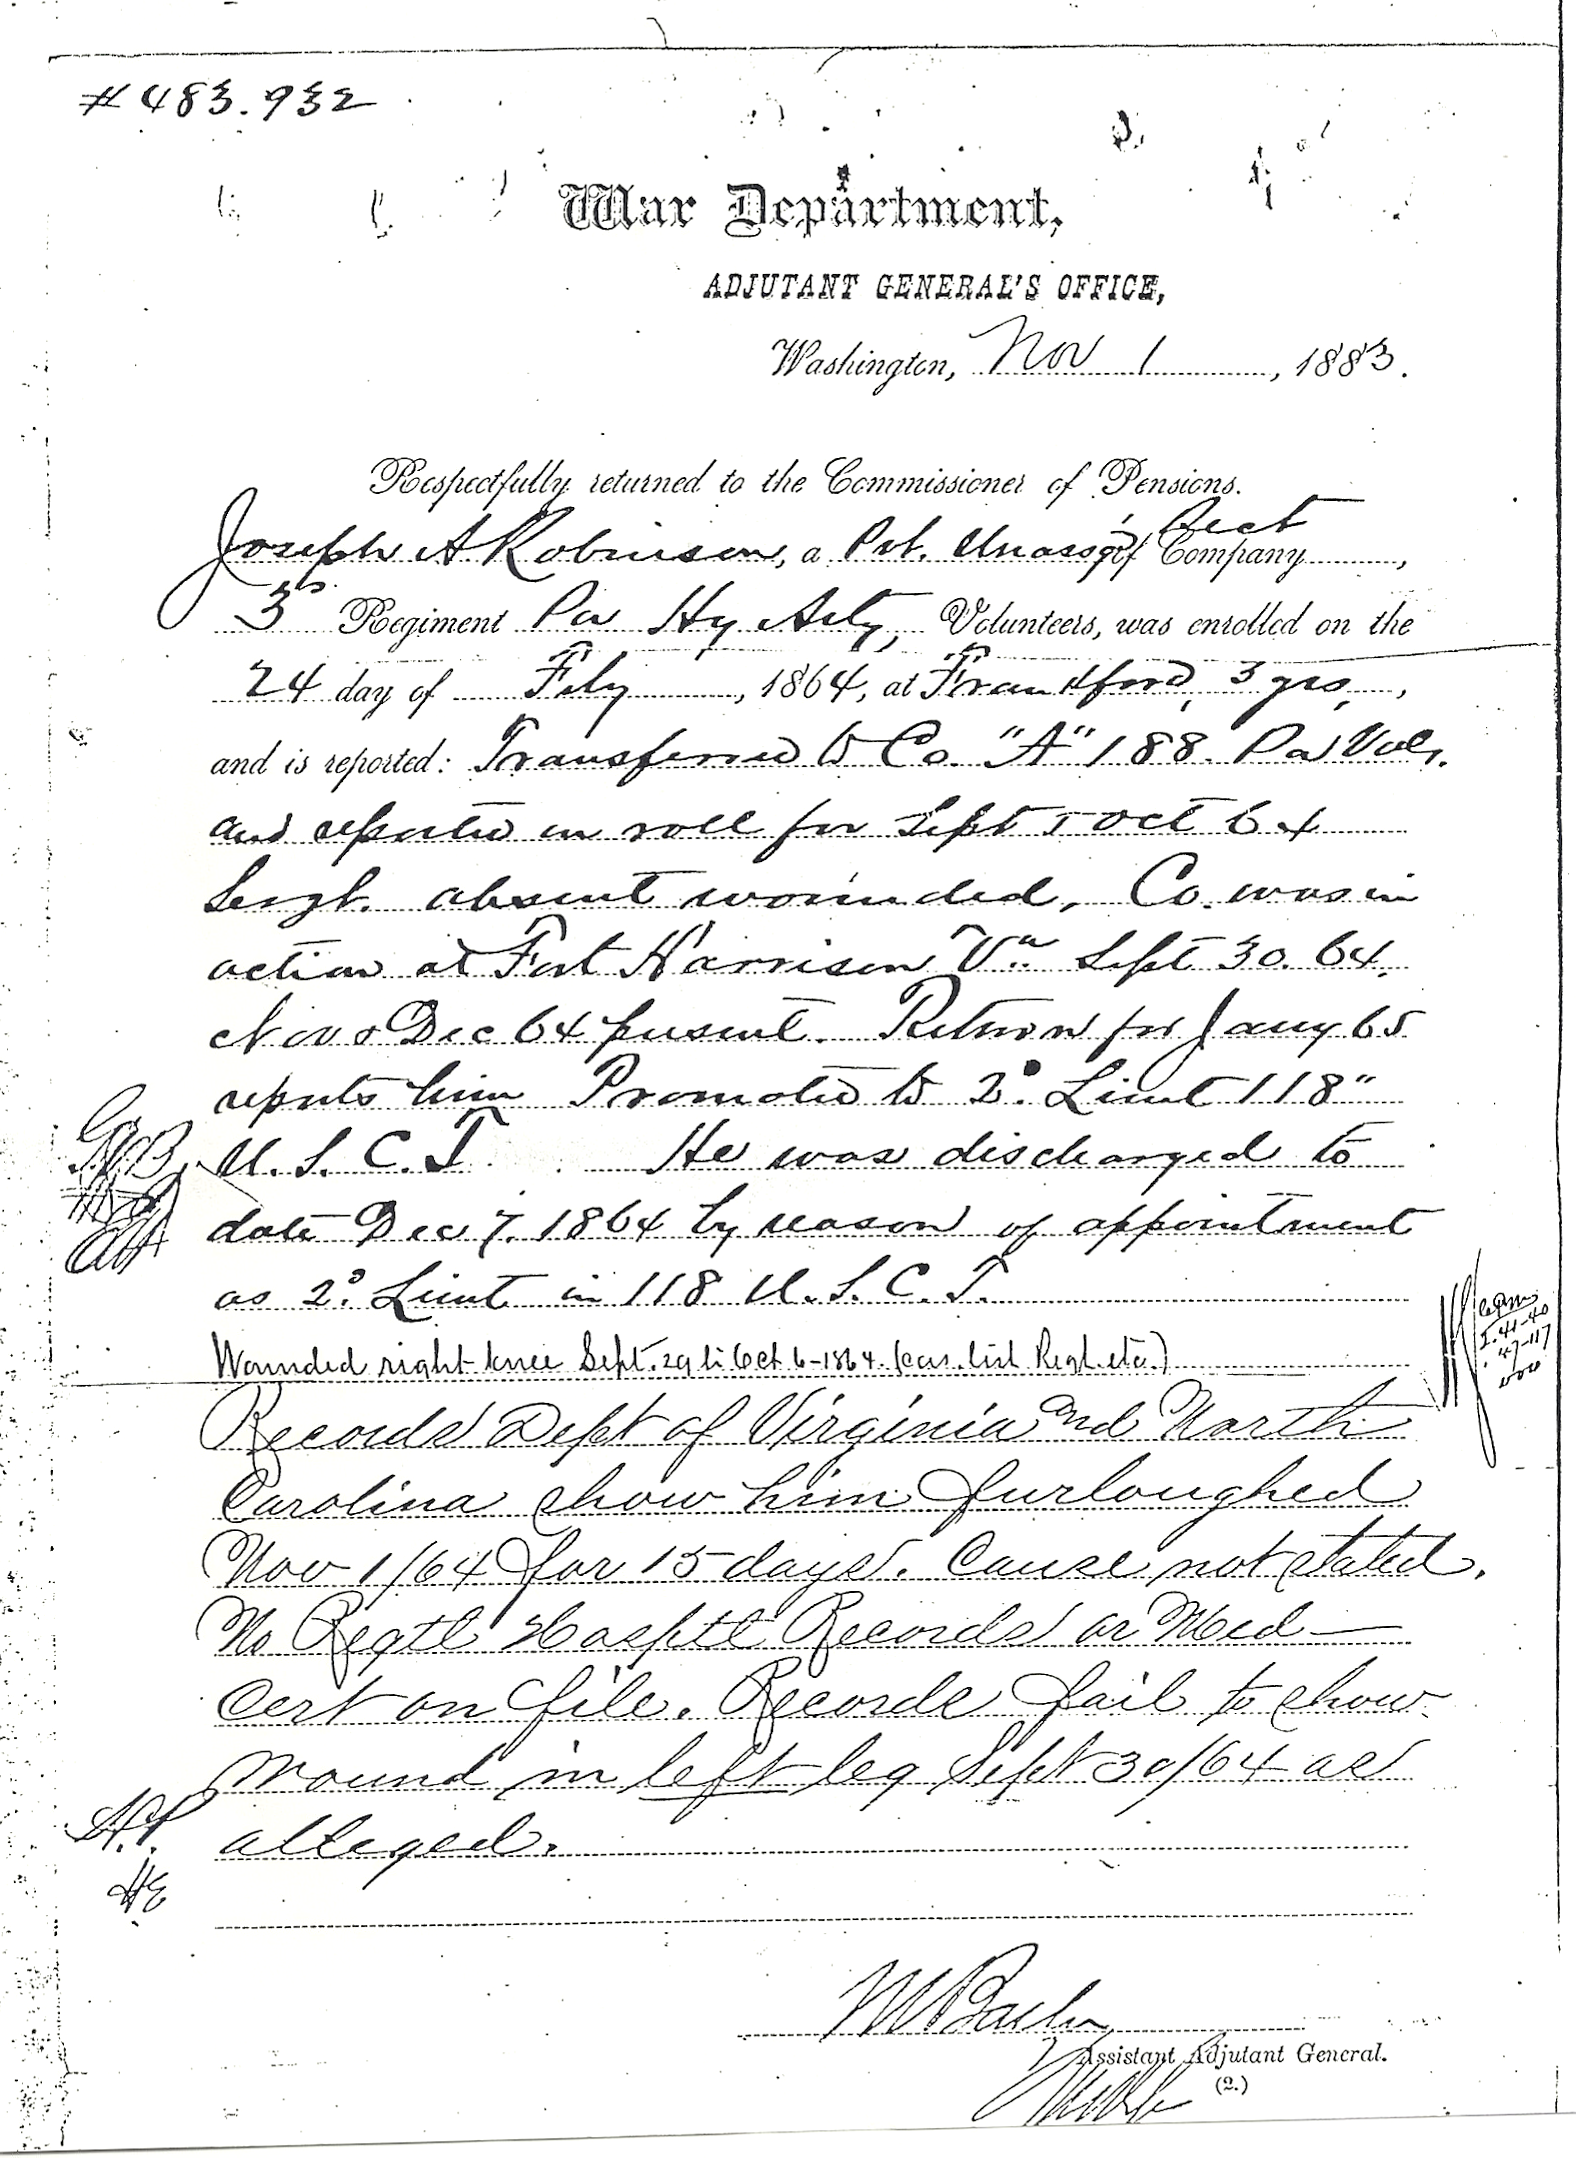 # 483.932
War Department,
ADJUTANT GENERAL'S OFFICE,
Washington, Nov 1, 1883.
Respectfully returned to the Commissioner of Pensions.
Joseph A Robinson, a Pvt. Unassgd Rect of Company,
3d Regiment Pa Hy Arty, Volunteers, was enrolled on the
24 day of Feby, 1864, at Frankford, 3 yrs,
and is reported: Transferred to Co. "A" 188. Pa Vols.
and reported on roll for Sept & Oct 64
Sergt. absent wounded, Co. was in
action at Fort Harrison Va Sept 30. 64.
Nov & Dec 64 present. Return for Jany 65
reports him Promoted to 2d Lieut 118"
U.S.C.T. He was discharged to
date Dec 7. 1864 by reason of appointment
as 2d Lieut in 118 U.S.C.T.
Wounded right knee Sept. 29 to Oct 6-1864. (cas. list Regt. etc.)
Records Dept of Virginia and North
Carolina show him furloughed
Nov 1/64 for 15 days. Cause not stated.
No Regtl Hosptl Records or Med
Cert on file. Records fail to show
wound in left leg Sept 30/64 as
alleged.
H.E
Assistant Adjutant General.
(2.)